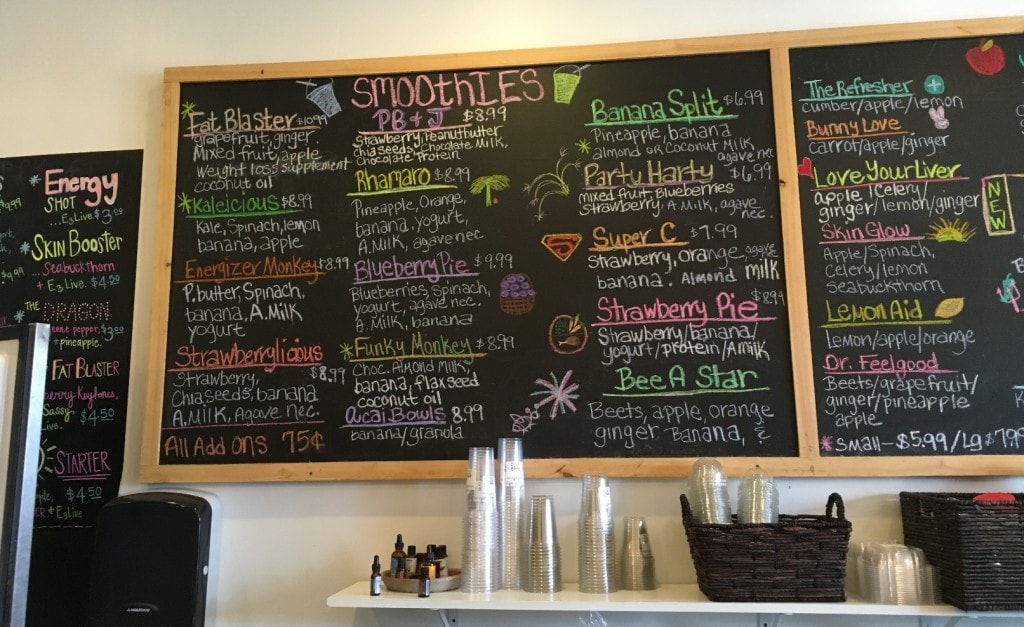 Energy
SHOT
...E3Live. $3.00
SKIN BOOSTER
... Seabuckthorn
+ E3Live. $4.50
THE DRAGON
pepper,
+ pineapple.
FAT BLASTER
Sassy
Live. $4.50
STARTER
$4.50
+ E3Live
SMOOTHIES
Fat Blaster $10.99
grapefruit, ginger
Mixed fruit, apple
Weight loss supplement
coconut oil
Kaleicious $8.99
Kale, Spinach, lemon
banana, apple
Energizer Monkey $8.99
P.butter, Spinach,
banana, A.Milk
yogurt
Strawberrylicious
$8.99
Strawberry,
Chia seeds, banana
A.Milk, Agave nec.
All Add Ons 75¢
PB & J $8.99
Strawberry, Peanutbutter
chia seeds, Chocolate Milk,
Chocolate Protein
Rhamaro $8.99
Pineapple, Orange,
banana, yogurt,
A.Milk, agave nec
Blueberry Pie $9.99
Blueberries, Spinach,
yogurt, agave nec.
A.Milk, banana
Funky Monkey $8.99
Choc. Almond Milk,
banana, flax seed
coconut oil
Acai Bowls 8.99
banand/granola
Banana Split $6.99
Pineapple, banana
almond or Coconut Milk
agave nec.
Party Harty $6.99
mixed fruit, Blueberries
Strawberry A.Milk, agave
nec.
Super C $7.99
Strawberry, orange, agave
banana. Almond milk
Strawberry Pie $8.99
Strawberry/banana/
yogurt/protein/A.milk
Bee A Star
Beets, apple, orange
ginger Banana,
The Refresher
cumber/apple/lemon
Bunny Love
carrot/apple/ginger
Love Your Liver
apple/Celery/
ginger/lemon/ginger
Skin Glow
Apple/Spinach,
Celery/lemon
seabuckthorn
Lemon Aid
Lemon/apple/orange
Dr. Feelgood
Beets/grapefruit/
ginger/pineapple
apple
*Small-$5.99/Lg $7.99
NEW